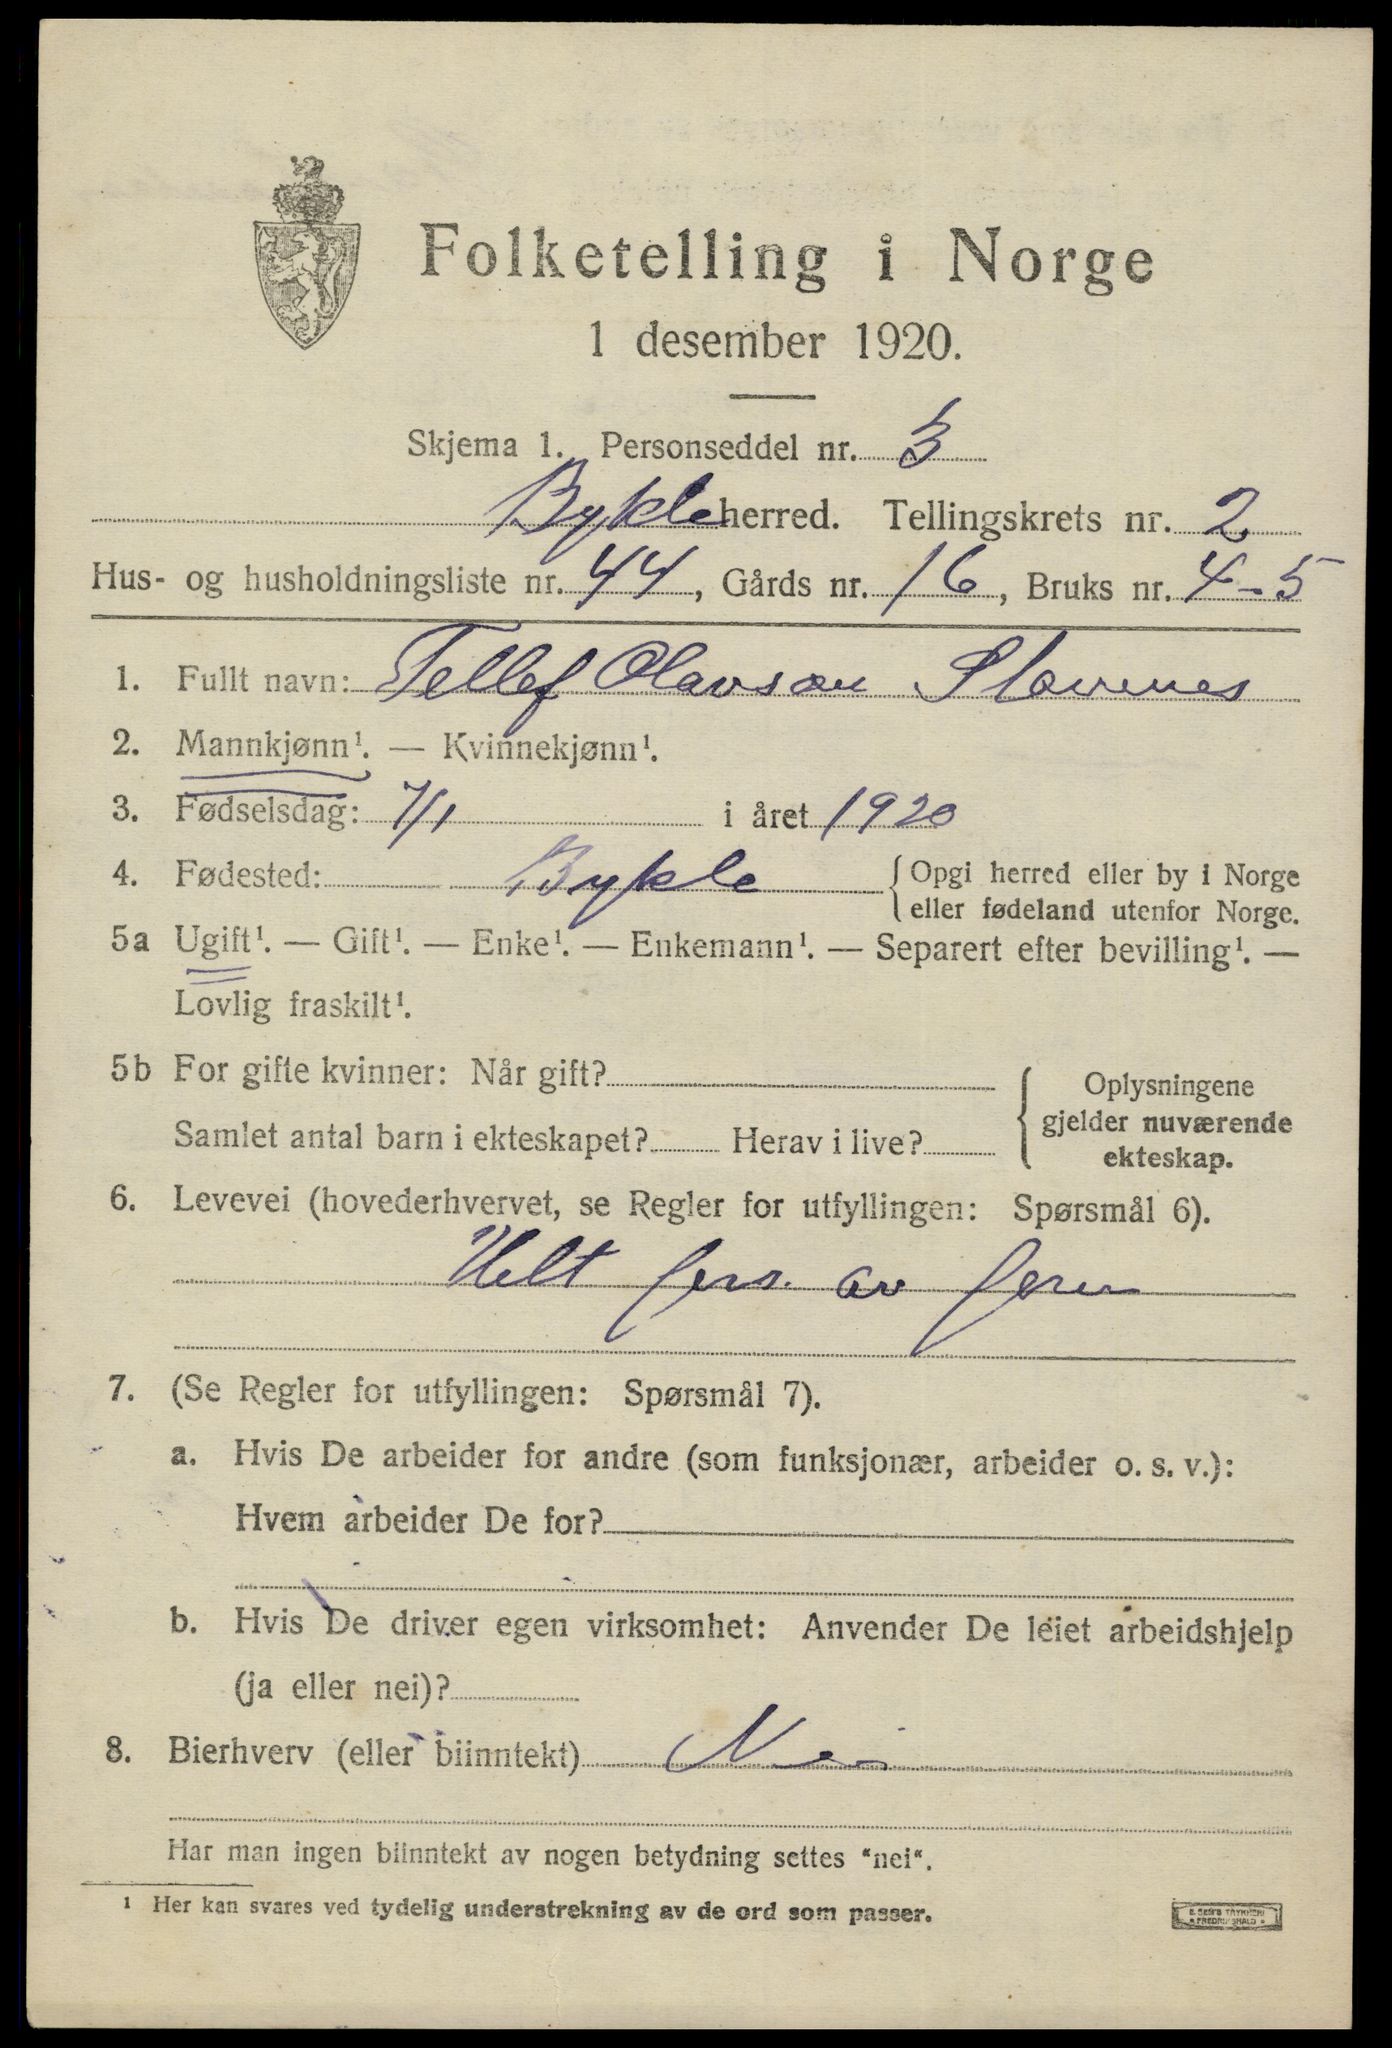 Folketelling i Norge
1 desember 1920.
Skjema 1. Personseddel nr. 3
Bykle herred. Tellingskrets nr. 2
Hus- og husholdningsliste nr. 44, Gårds nr. 16, Bruks nr. 4-5
1. Fullt navn: Tellef Olavson Stavenes
2. Mannkjønn¹. — Kvinnekjønn¹.
3. Fødselsdag: 7/1 i året 1920
4. Fødested: Bykle { Opgi herred eller by i Norge
eller fødeland utenfor Norge.
5a Ugift¹. — Gift¹. — Enke¹. — Enkemann¹. — Separert efter bevilling¹. —
Lovlig fraskilt¹.
5b For gifte kvinner: Når gift?
Samlet antal barn i ekteskapet? Herav i live?
{ Oplysningene
gjelder nuværende
ekteskap.
6. Levevei (hovederhvervet, se Regler for utfyllingen: Spørsmål 6).
Helt fors. av
7. (Se Regler for utfyllingen: Spørsmål 7).
a. Hvis De arbeider for andre (som funksjonær, arbeider o. s. v.):
Hvem arbeider De for?
b. Hvis De driver egen virksomhet: Anvender De leiet arbeidshjelp
(ja eller nei)?
8. Bierhverv (eller biinntekt) Nei
Har man ingen biinntekt av nogen betydning settes "nei".
¹ Her kan svares ved tydelig understrekning av de ord som passer.